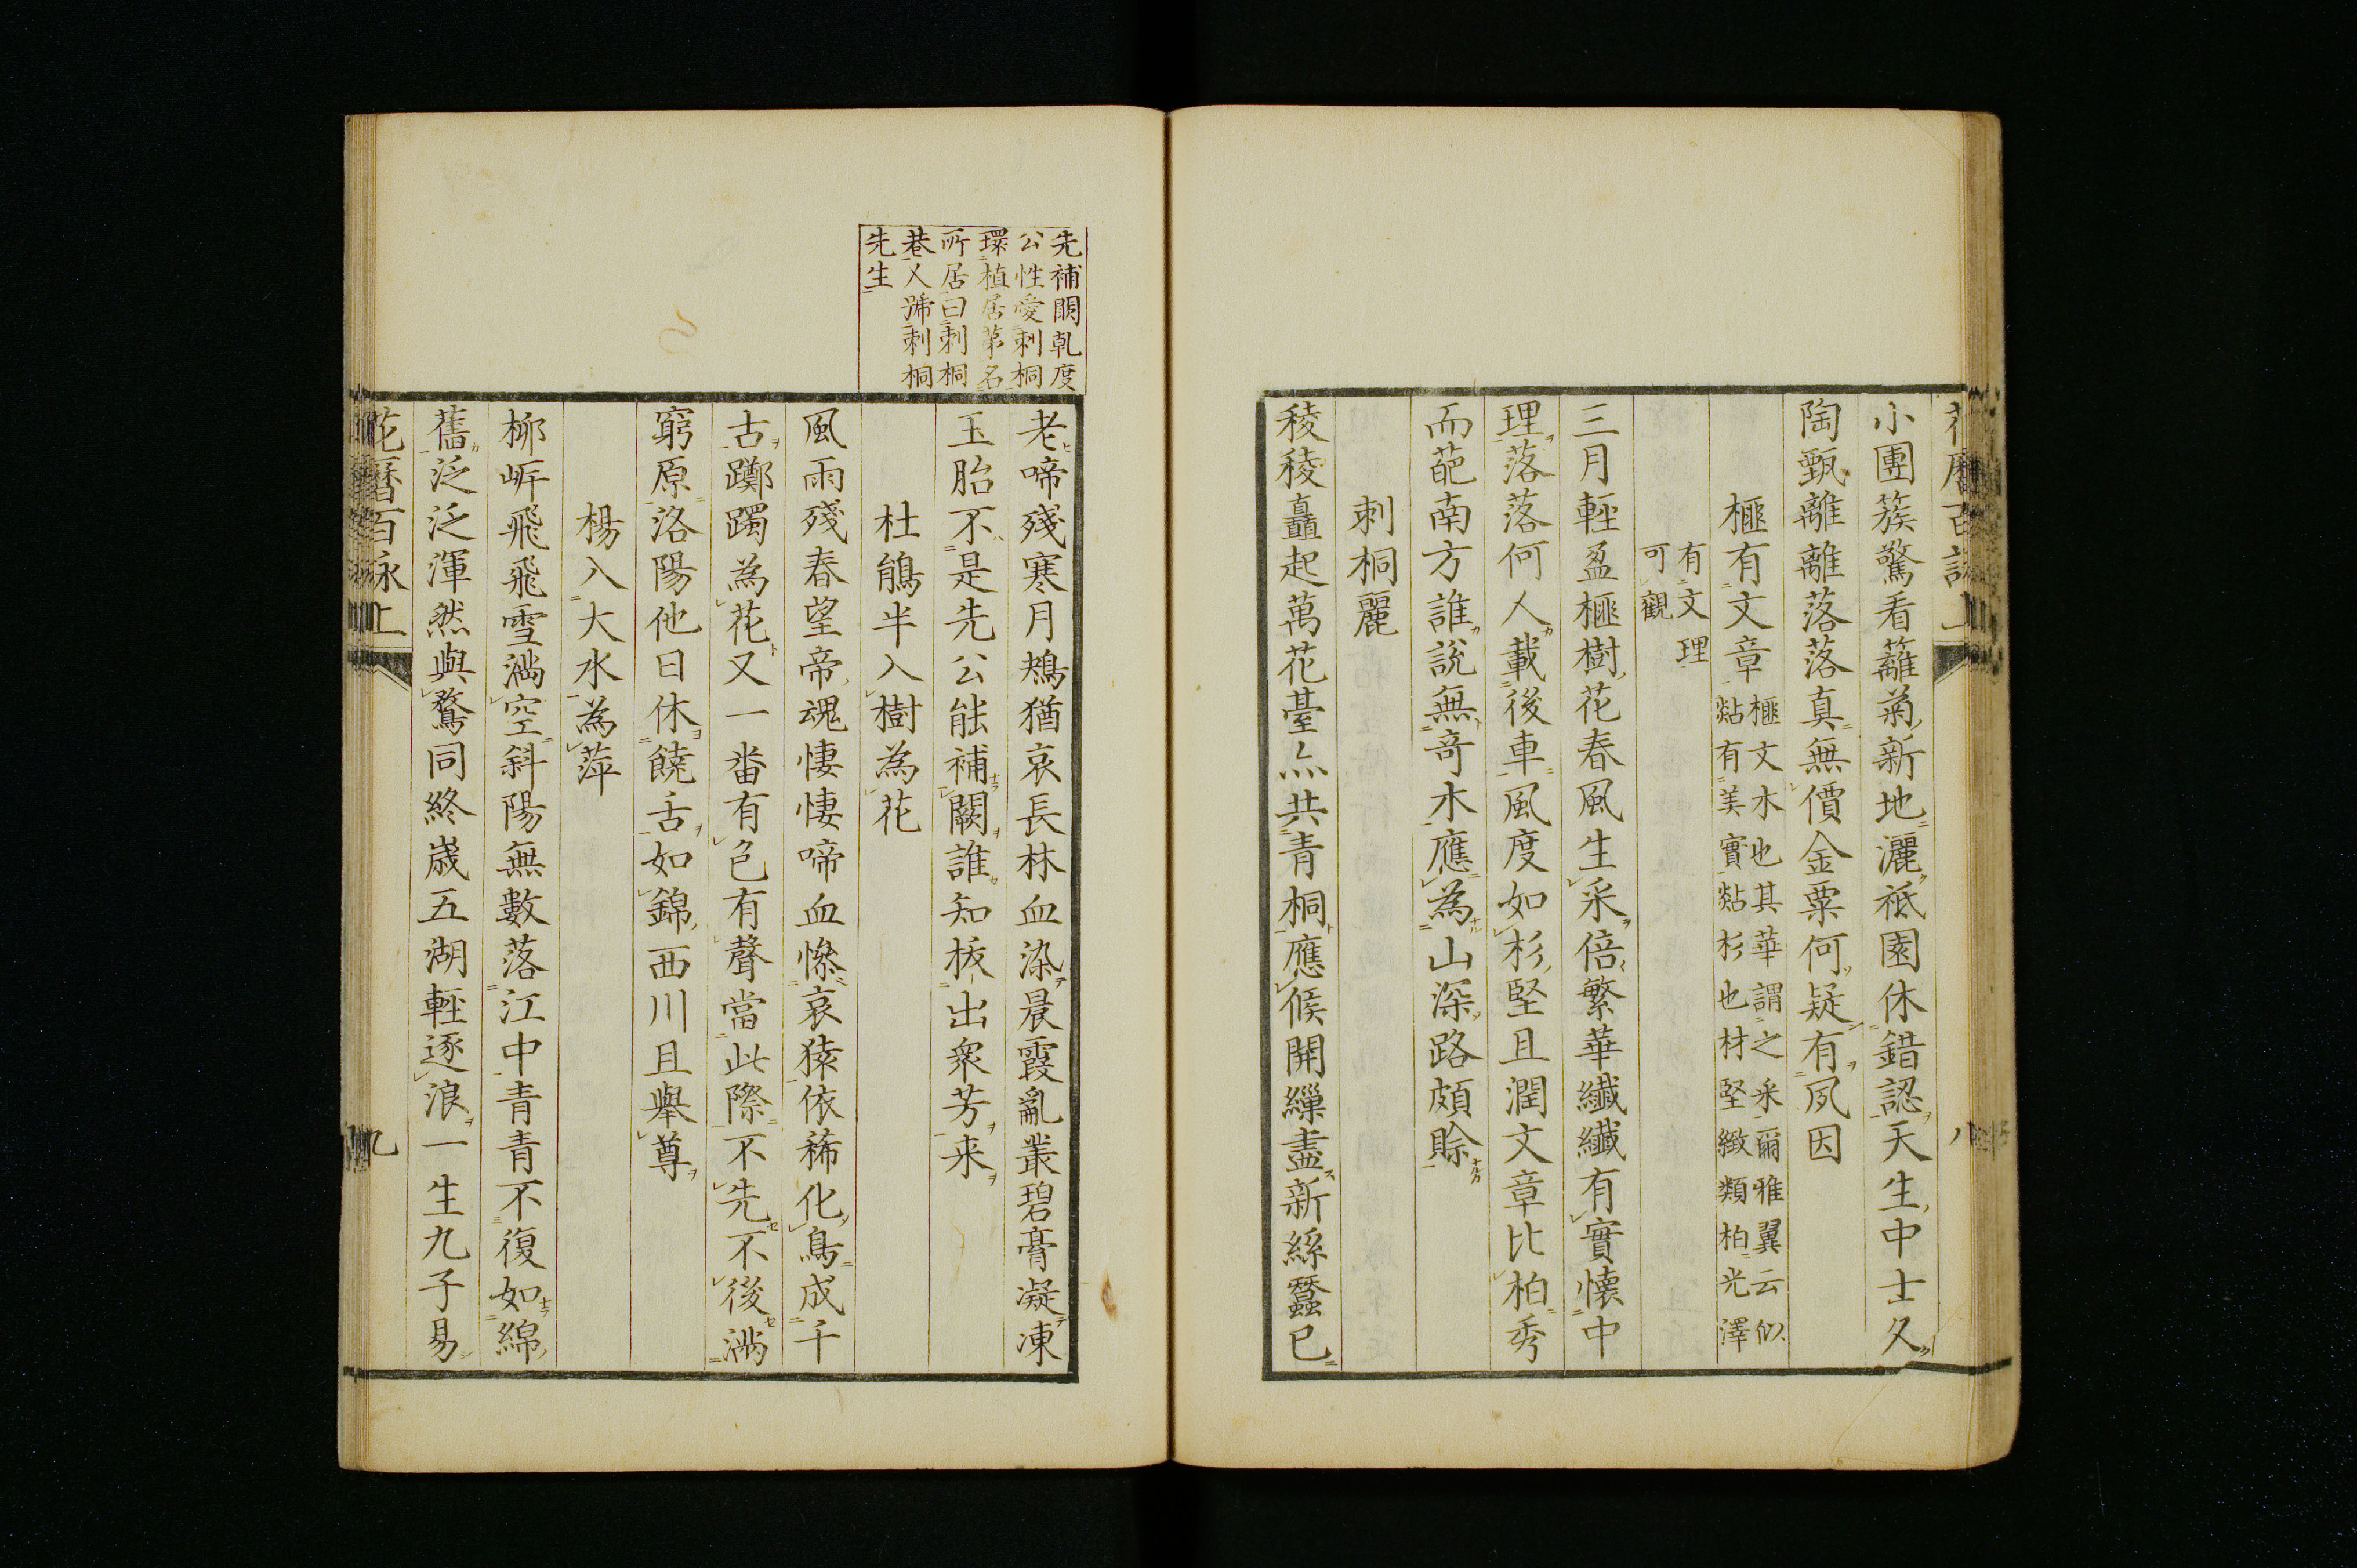 小團簇驚看籬菊新地灑祗園休錯認天生中士久
陶甄離離落落真無價金粟何疑有夙因
榧有文章
榧文木也其華謂之采爾雅翼云似
㸃有美實㸃杉也材堅緻類柏光澤
有文理
可觀
三月輕盈榧樹花春風生采倍繁華纖纖有實懷中
理落落何人載後車風度如杉堅且潤文章比柏秀
而葩南方誰說無奇木應為山深路頗賒
刺桐麗
稜稜矗起萬花臺亦共青桐應候開繅盡新絲蠶已
先補闕乾度
公性愛刺桐
環植居第名
所居曰刺桐
巷人號刺桐
先生
老啼殘寒月鴂猶哀長林血染晨霞亂叢碧膏凝凍
玉胎不是先公能補闕誰知拔出衆芳来
杜鵑半入樹為花
風雨殘春望帝魂悽悽啼血慘哀猿依稀化鳥成千
古躑躅為花又一番有色有聲當此際不先不後滿
窮原洛陽他日休饒舌如錦西川且舉尊
楊入大水為萍
柳㟁飛飛雪滿空斜陽無數落江中青青不復如綿
舊泛泛渾然與鶩同終歲五湖輕逐浪一生九子易
花曆百詠上
九